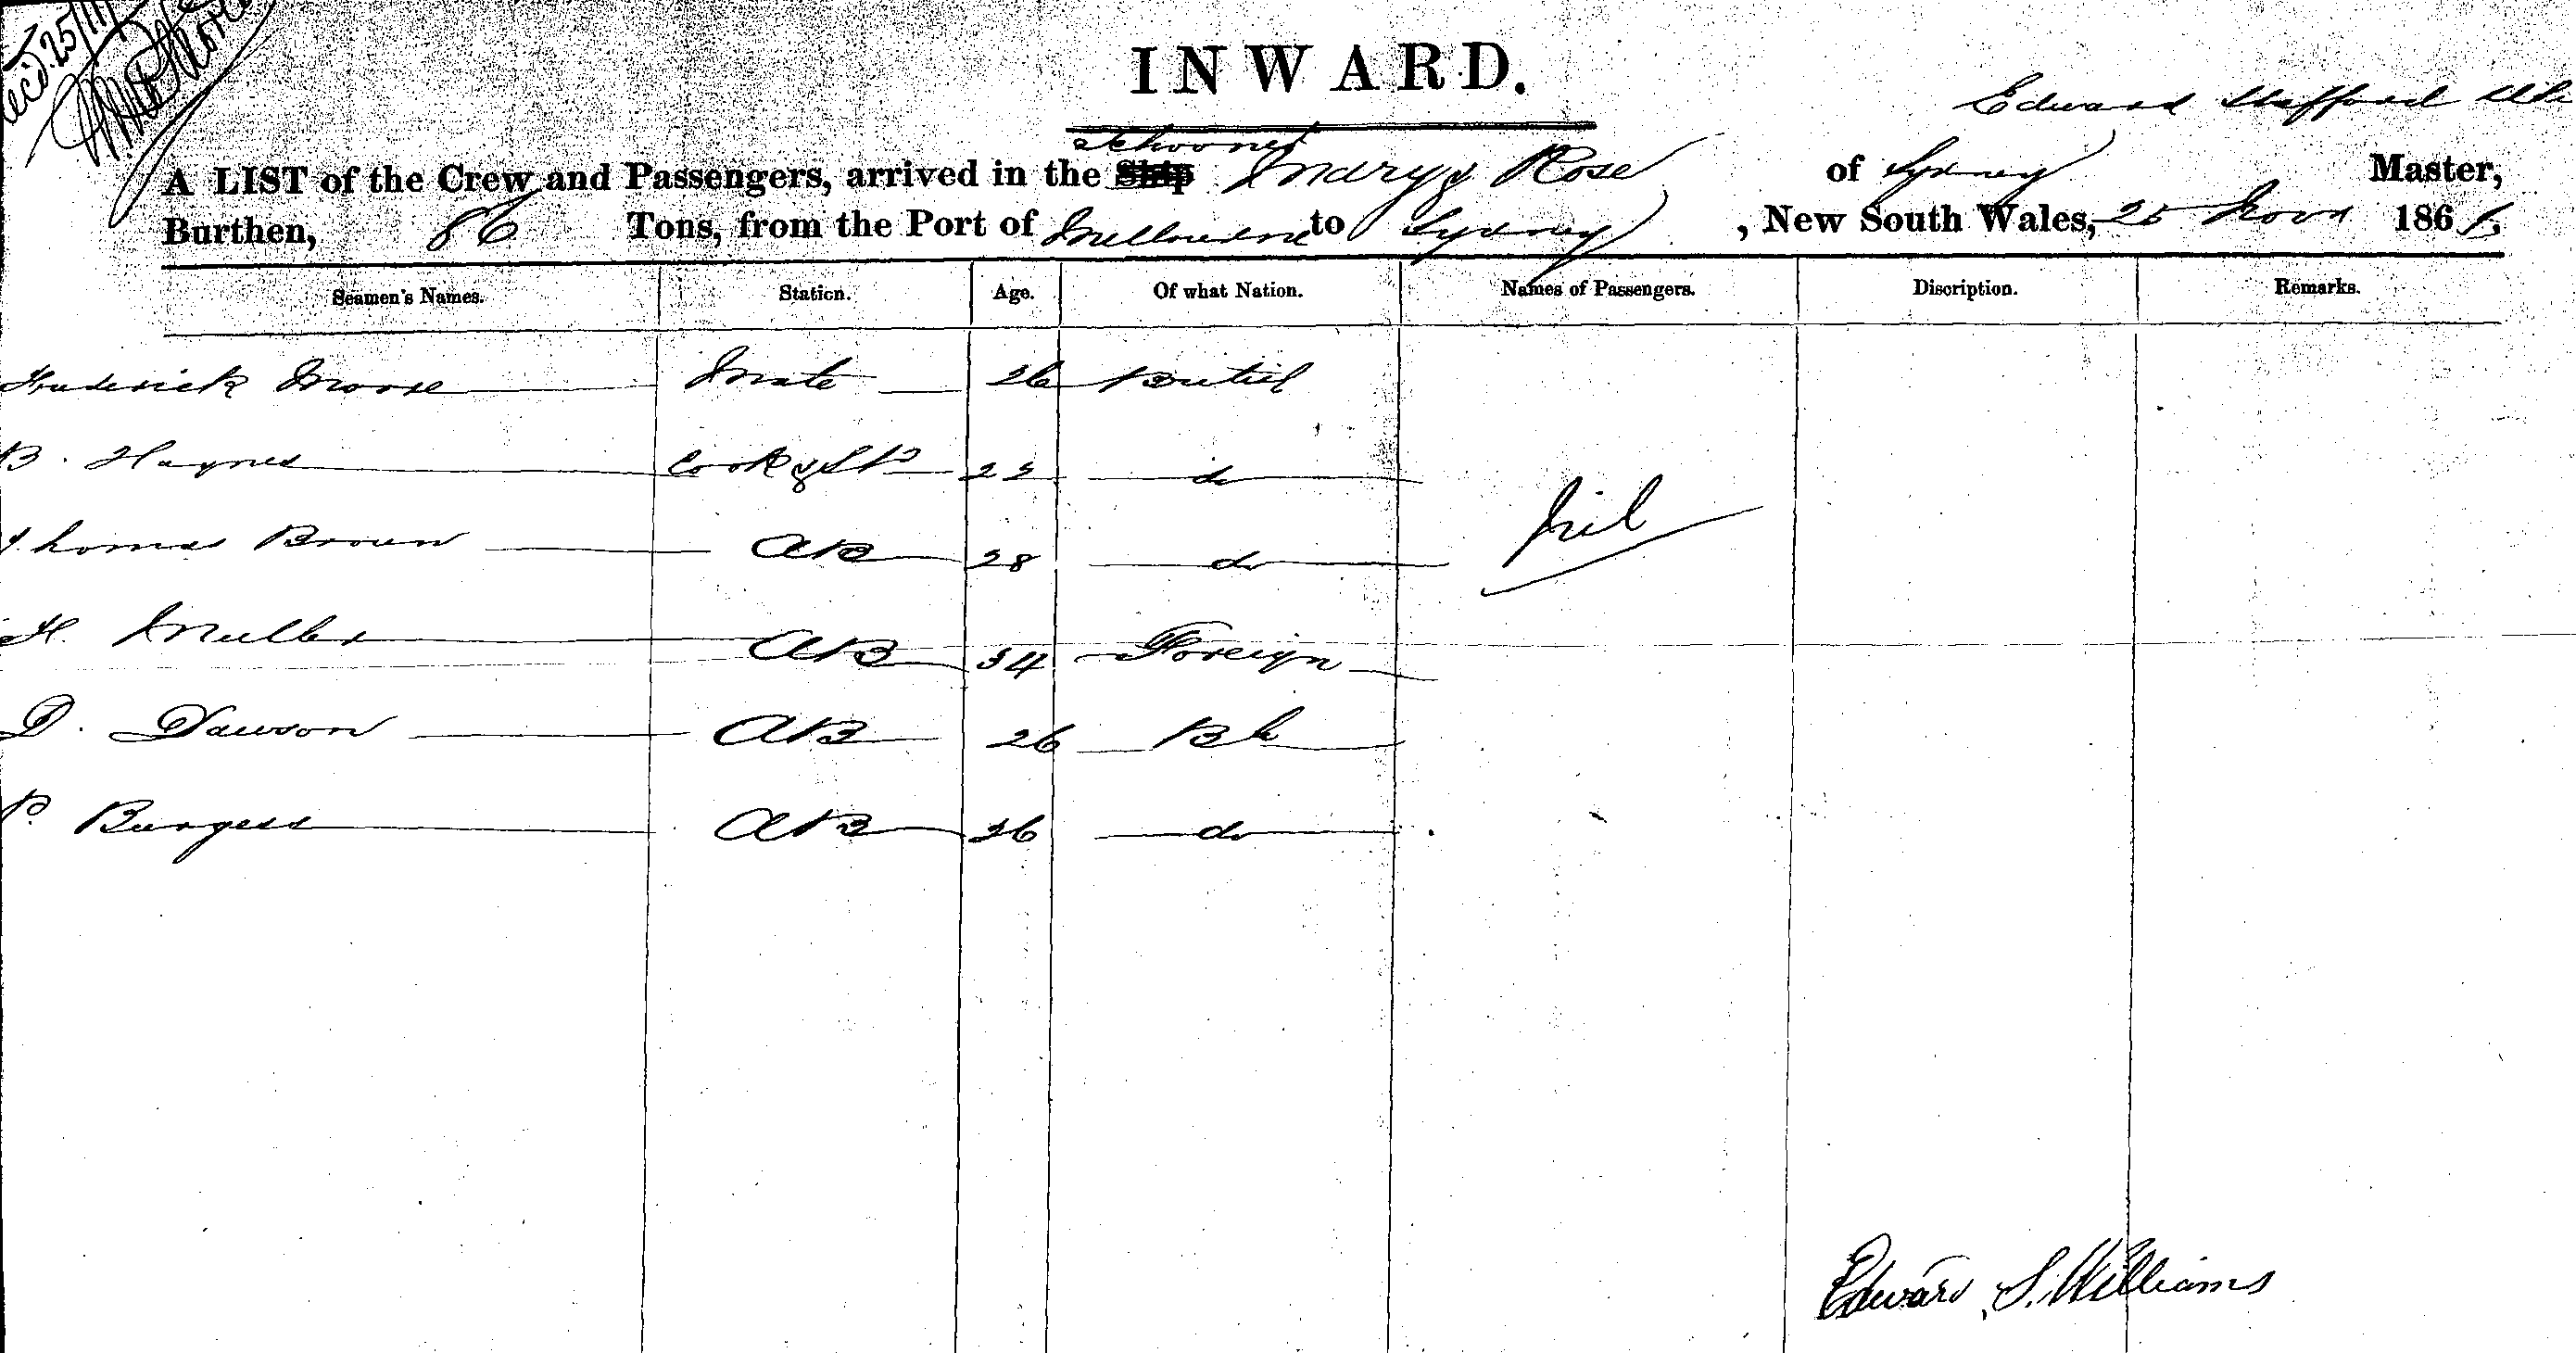 Rec'd 25/11/
INWARD.
Edward Stafford
Schooner
A LIST of the Crew and Passengers, arrived in the Ship Mary & Rose of Sydney Master,
Burthen, 86 Tons, from the Port of Melbourne to Sydney, New South Wales, 25 Novr 186
Seamen's Names. Station. Age. Of what Nation. Names of Passengers. Discription. Remarks.
Frederick Moore Mate 26 British
B. Haynes Cook & Std 22 do
Thomas Brown AB 28 do nil
H. Muller AB 34 Foreign
D. Dawson AB 26 Bh
P. Burgess AB 26 do
Edward S. Williams